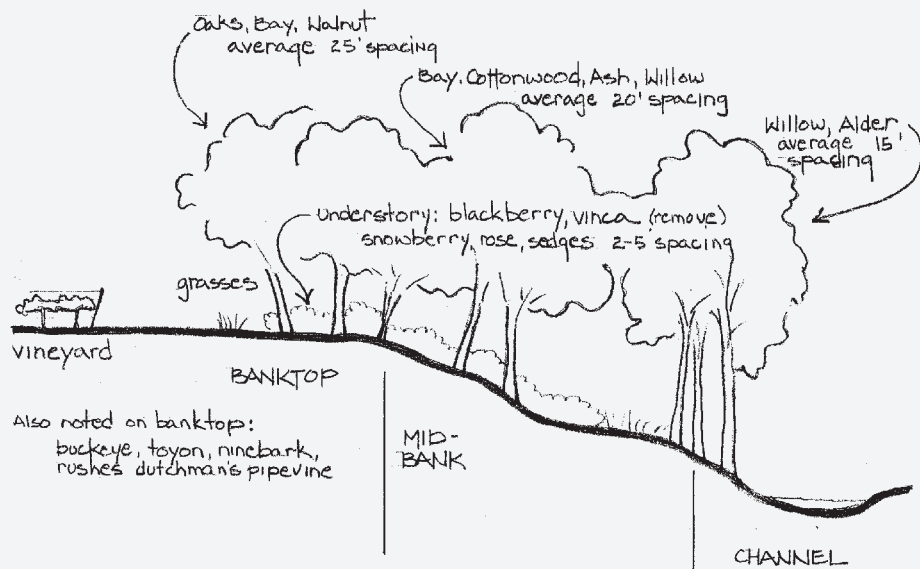 Oaks, Bay, Walnut
average 25' spacing
Bay, Cottonwood, Ash, Willow
average 20' spacing
Willow, Alder
average 15'
spacing
Understory: blackberry, vinca (remove)
snowberry, rose, sedges 2-5' spacing
grasses
vineyard
BANKTOP
Also noted on banktop:
buckeye, toyon, ninebark,
rushes dutchman's pipevine
MID-
BANK
CHANNEL